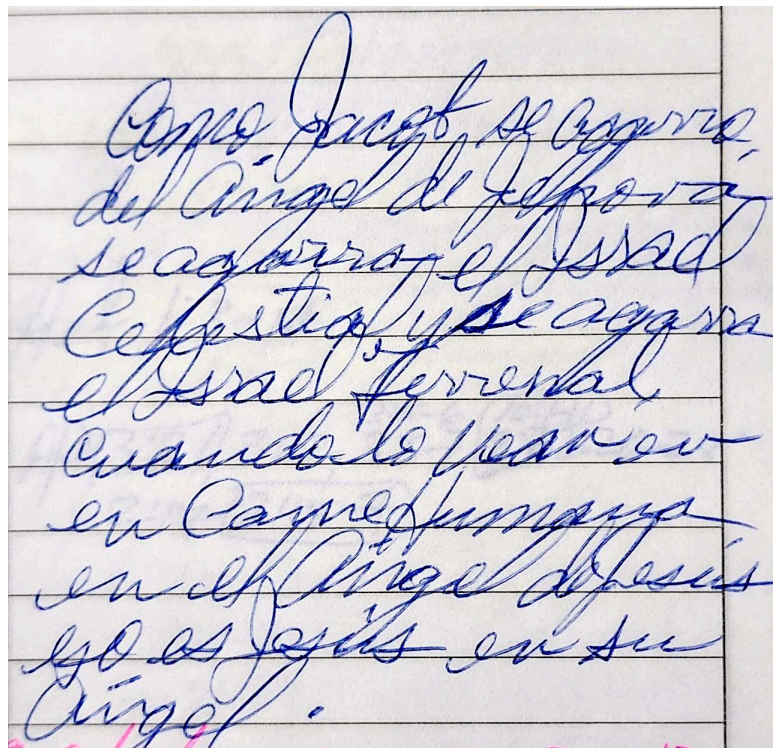 Como Jacob se agarró
del Ángel de Jehová
se agarra el Israel
Celestial y se agarra
el Israel terrenal,
cuando lo vean en
en Carne Humana
en el Ángel de Jesús
eso es Jesús en su
Ángel.